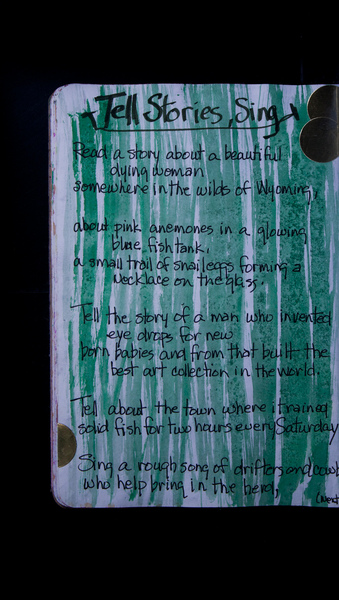 Tell Stories, Sing
Read a story about a beautiful
dying woman
somewhere in the wilds of Wyoming,
about pink anemones in a glowing
blue fishtank.
a small trail of snail eggs forming a
necklace on the glass.
Tell the story of a man who invented
eye drops for new
born babies and from that built the
best art collection in the world.
Tell about the town where it rained
solid fish for two hours every Saturday
Sing a rough song of drifters and cowb
who help bring in the herd,
(next